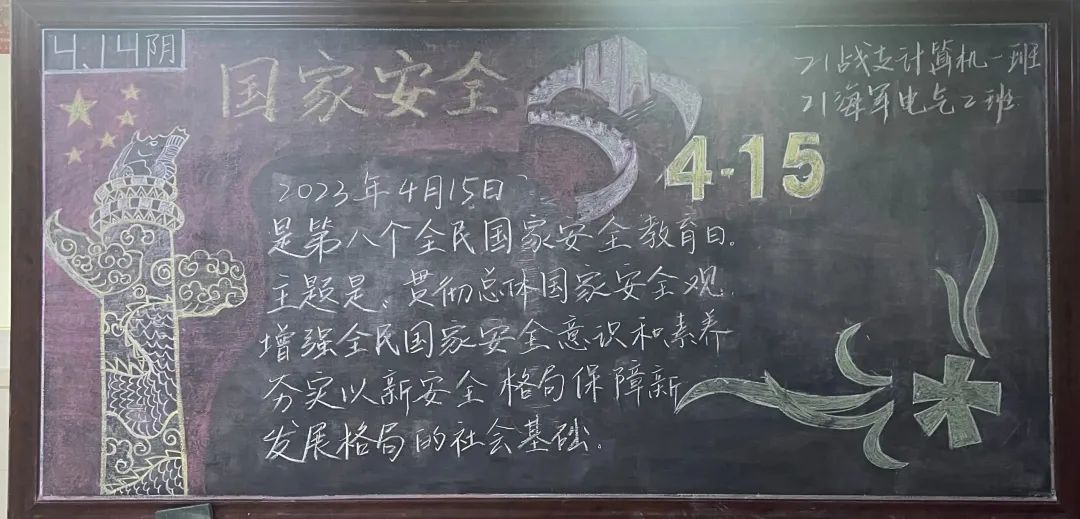 4.14阴
国家安全
21战支计算机一班
21海军电气2班
4·15
2023年4月15日
是第八个全民国家安全教育日。
主题是：贯彻总体国家安全观
增强全民国家安全意识和素养
夯实以新安全格局保障新
发展格局的社会基础.